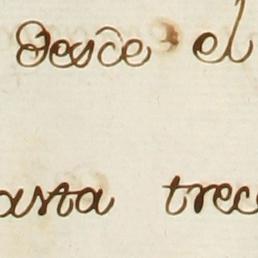 desde el
asta trec